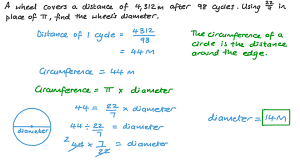 A wheel covers a distance of 4,312 m after 98 cycles. Using 22/7 in
place of π, find the wheel's diameter.
Distance of 1 cycle = 4312/98
= 44 m
The circumference of a
circle is the distance
around the edge.
Circumference = 44 m
Circumference = π × diameter
44 = 22/7 × diameter
44 ÷ 22/7 = diameter
2 44 × 7/22 = diameter
diameter
diameter = 14 m